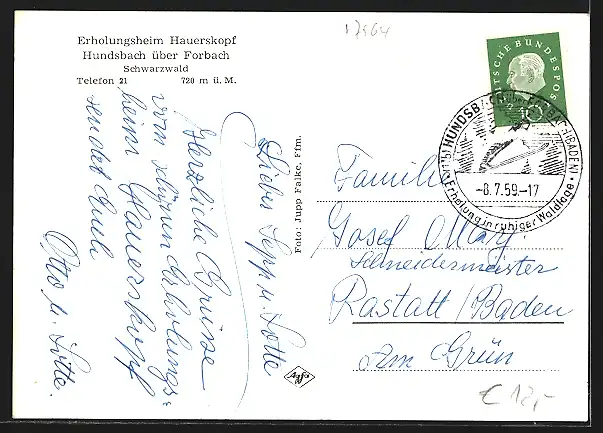 17464
Erholungsheim Hauerskopf
Hundsbach über Forbach
Schwarzwald
Telefon 21 720 m ü. M.
Lieber Sepp u. Lotte
Herzliche Grüsse
vom schönen Erholungs=
heim Hauerskopf
sendet Euch
Otto u. Lotte.
Foto: Jupp Falke, Ffm.
Agfa
DEUTSCHE BUNDESPOST
10
HUNDSBACH über FORBACH (BADEN)
-8.7.59.-17
Erholung in ruhiger Waldlage
Familie
Josef May.
Schneidermeister
Rastatt/Baden
Am Grün
€ 12,-